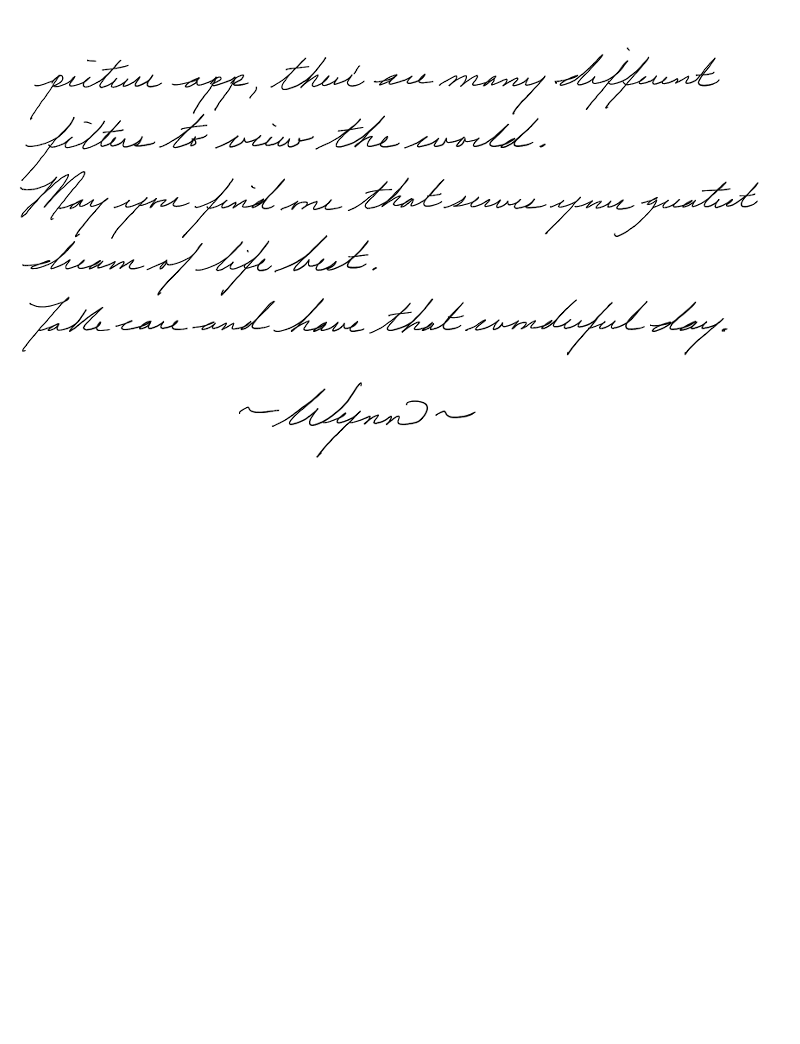 picture app, there are many different
filters to view the world.
May you find one that serves your greatest
dream of life best.
Take care and have that wonderful day.
~ Wynn ~